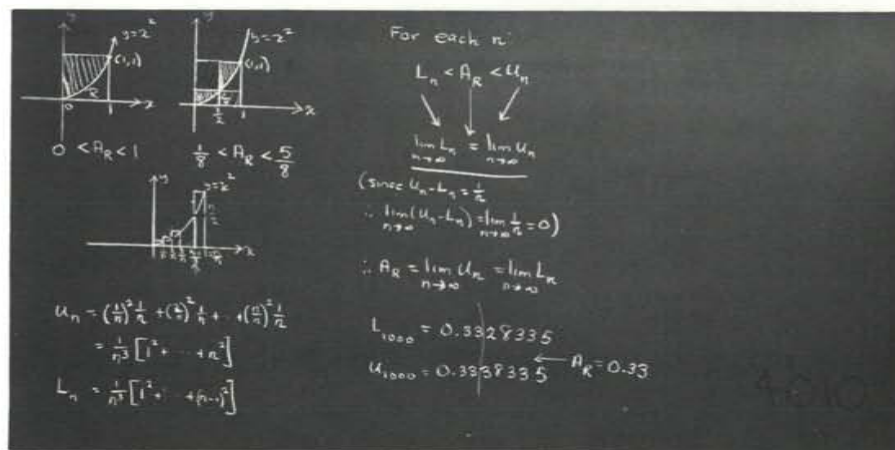 y y
y=x² y=x²
(1,1) (1,1)
R
0 1 x 1/2 1 x
0 < A_R < 1 1/8 < A_R < 5/8
y
y=x²
x
U_n = (1/n)² 1/n + (2/n)² 1/n + .. + (n/n)² 1/n
= 1/n³ [1² + ···· + n²]
L_n = 1/n³ [1² + ··· + (n-1)²]
For each n:
L_n < A_R < U_n
lim L_n = lim U_n
n→∞ n→∞
(since U_n - L_n = 1/n
∴ lim (U_n - L_n) = lim 1/n = 0)
n→∞ n→∞
∴ A_R = lim U_n = lim L_n
n→∞ n→∞
L_1000 = 0.3328335
U_1000 = 0.3338335 ← A_R = 0.33
4010